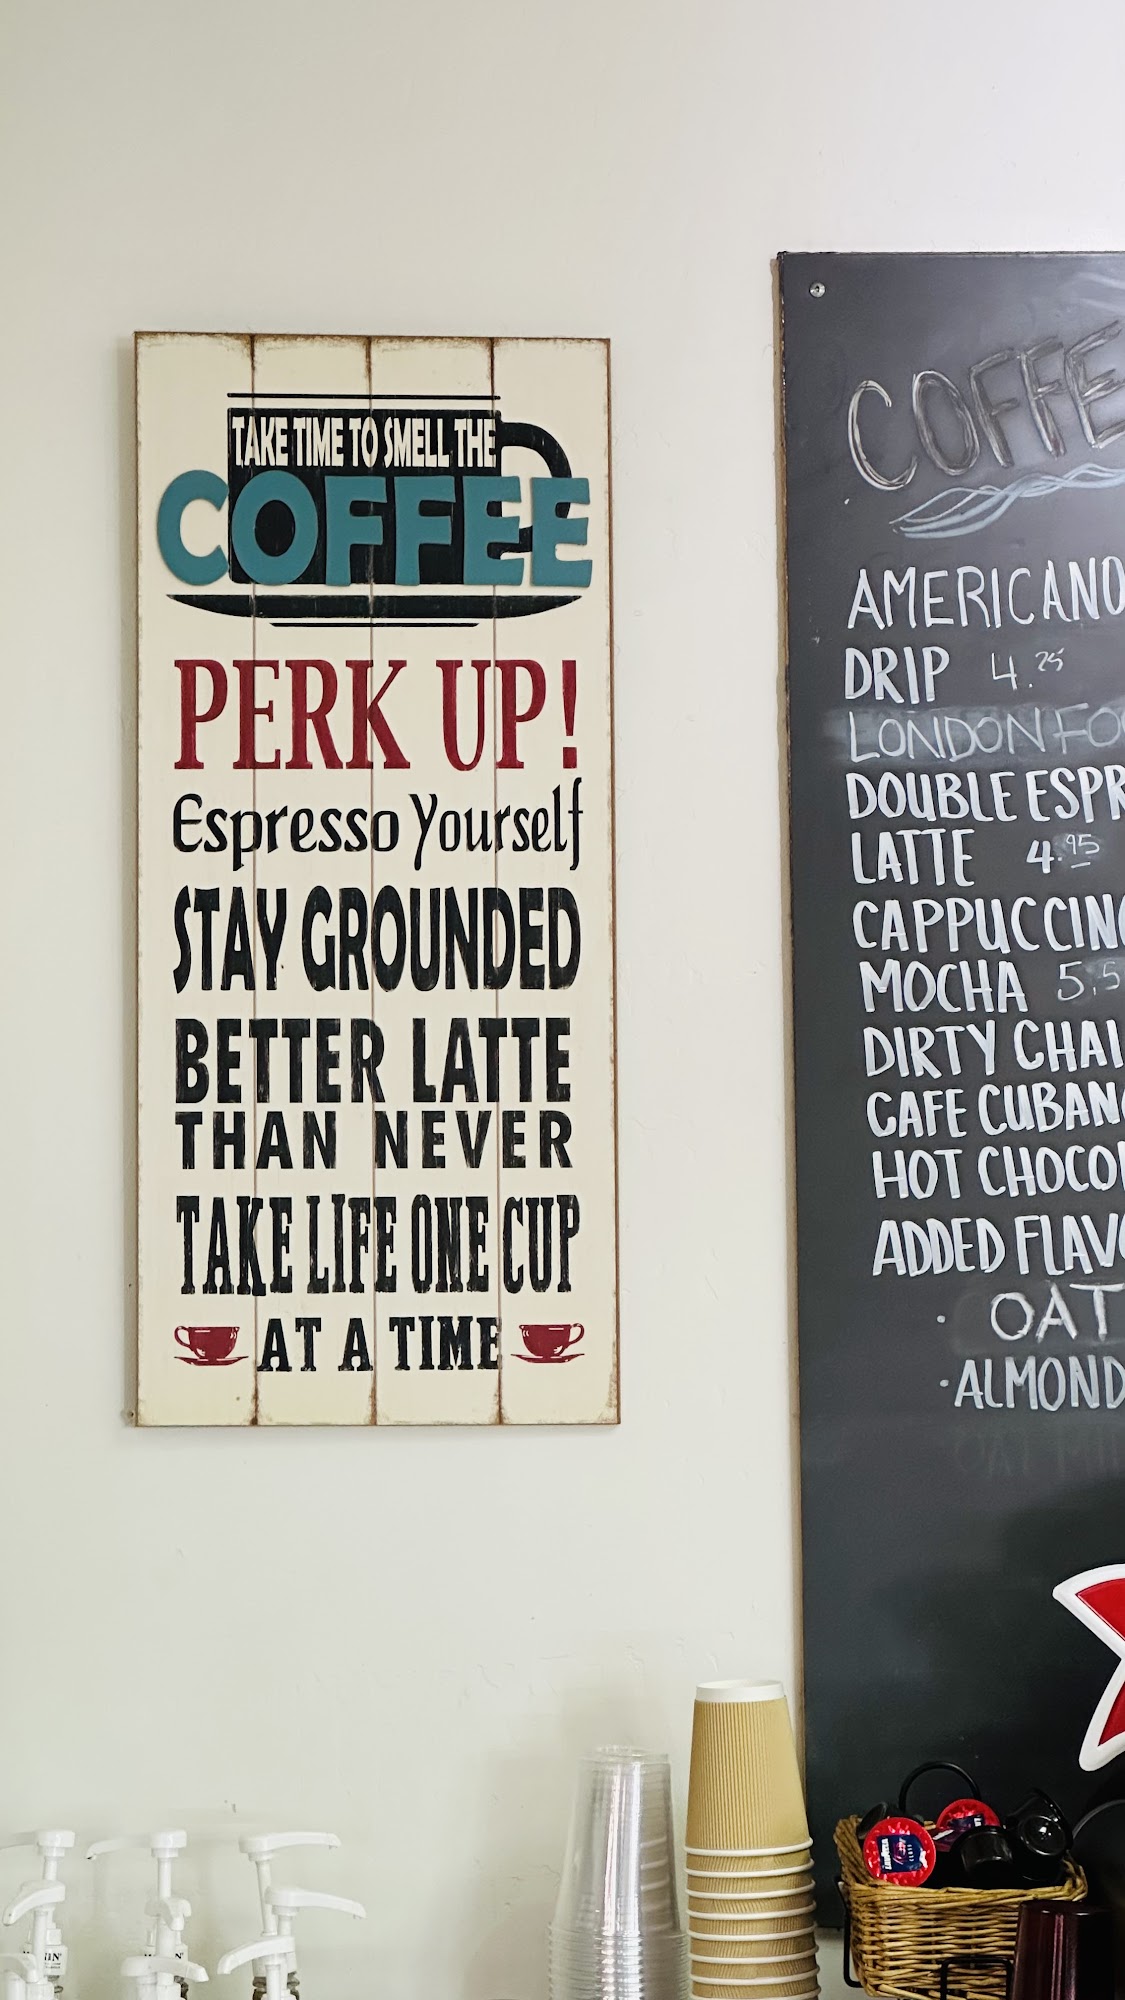 TAKE TIME TO SMELL THE
COFFEE
PERK UP!
Espresso Yourself
STAY GROUNDED
BETTER LATTE
THAN NEVER
TAKE LIFE ONE CUP
AT A TIME
COFFE
AMERICANO
DRIP 4.25
LONDON FO
DOUBLE ESPR
LATTE 4.95
CAPPUCCINO
MOCHA 5.5
DIRTY CHAI
CAFE CUBANO
HOT CHOCO
ADDED FLAVO
· OAT
· ALMOND